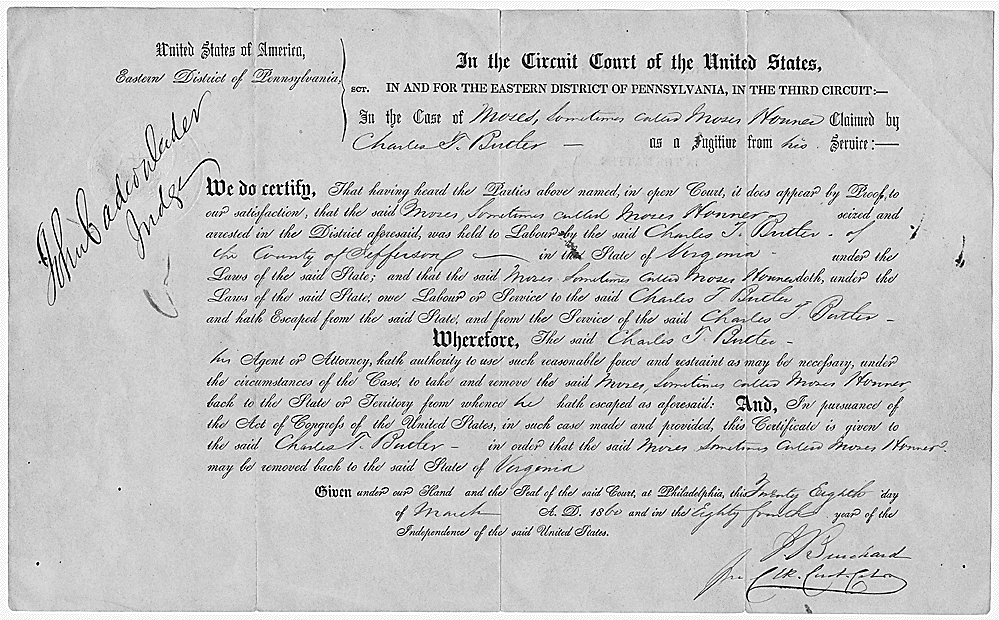 United States of America,
Eastern District of Pennsylvania,
SCT.
In the Circuit Court of the United States,
IN AND FOR THE EASTERN DISTRICT OF PENNSYLVANIA, IN THE THIRD CIRCUIT:—
In the Case of Moses, Sometimes called Moses Honner Claimed by
Charles T. Butler — as a Fugitive from his Service:—
John Cadwalader
Judge
We do certify, That having heard the Parties above named, in open Court, it does appear by Proof, to
our satisfaction, that the said Moses, Sometimes called Moses Honner seized and
arrested in the District aforesaid, was held to Labour by the said Charles T. Butler - of
the County of Jefferson — in the State of Virginia - under the
Laws of the said State; and that the said Moses Sometimes called Moses Honner doth, under the
Laws of the said State, owe Labour or Service to the said Charles T Butler
and hath Escaped from the said State, and from the Service of the said Charles T. Butler -
Wherefore, The said Charles T. Butler -
his Agent or Attorney, hath authority to use such reasonable force and restraint as may be necessary, under
the circumstances of the Case, to take and remove the said Moses Sometimes called Moses Honner
back to the State or Territory from whence he hath escaped as aforesaid: And, In pursuance of
the Act of Congress of the United States, in such case made and provided, this Certificate is given to
the said Charles T. Butler - in order that the said Moses Sometimes Called Moses Honner
may be removed back to the said State of Virginia
Given under our Hand and the Seal of the said Court, at Philadelphia, this Twenty Eighth day
of March A. D. 1860 and in the Eighty fourth year of the
Independence of the said United States.
Clk. Circt.